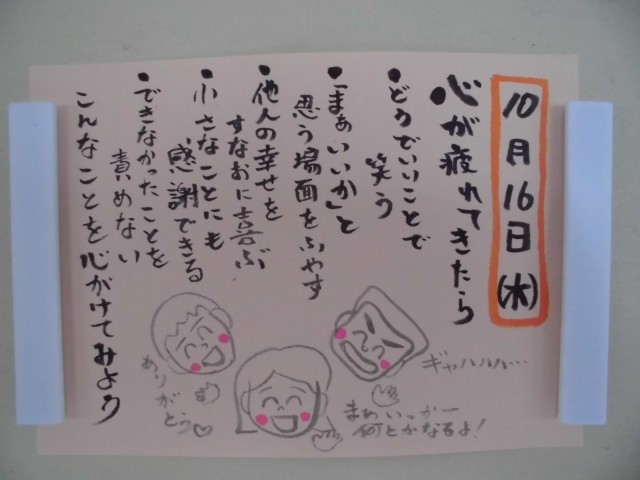 10月16日(水)
心が疲れてきたら
・どうでいいことで
笑う
・「まぁいいか」と
思う場面をふやす
・他人の幸せを
すなおに喜ぶ
・小さなことにも
感謝できる
・できなかったことを
責めない
こんなことを心がけてみよう
ギャハハハ…
まぁいっかー
何とかなるよ!
ありがとう♡